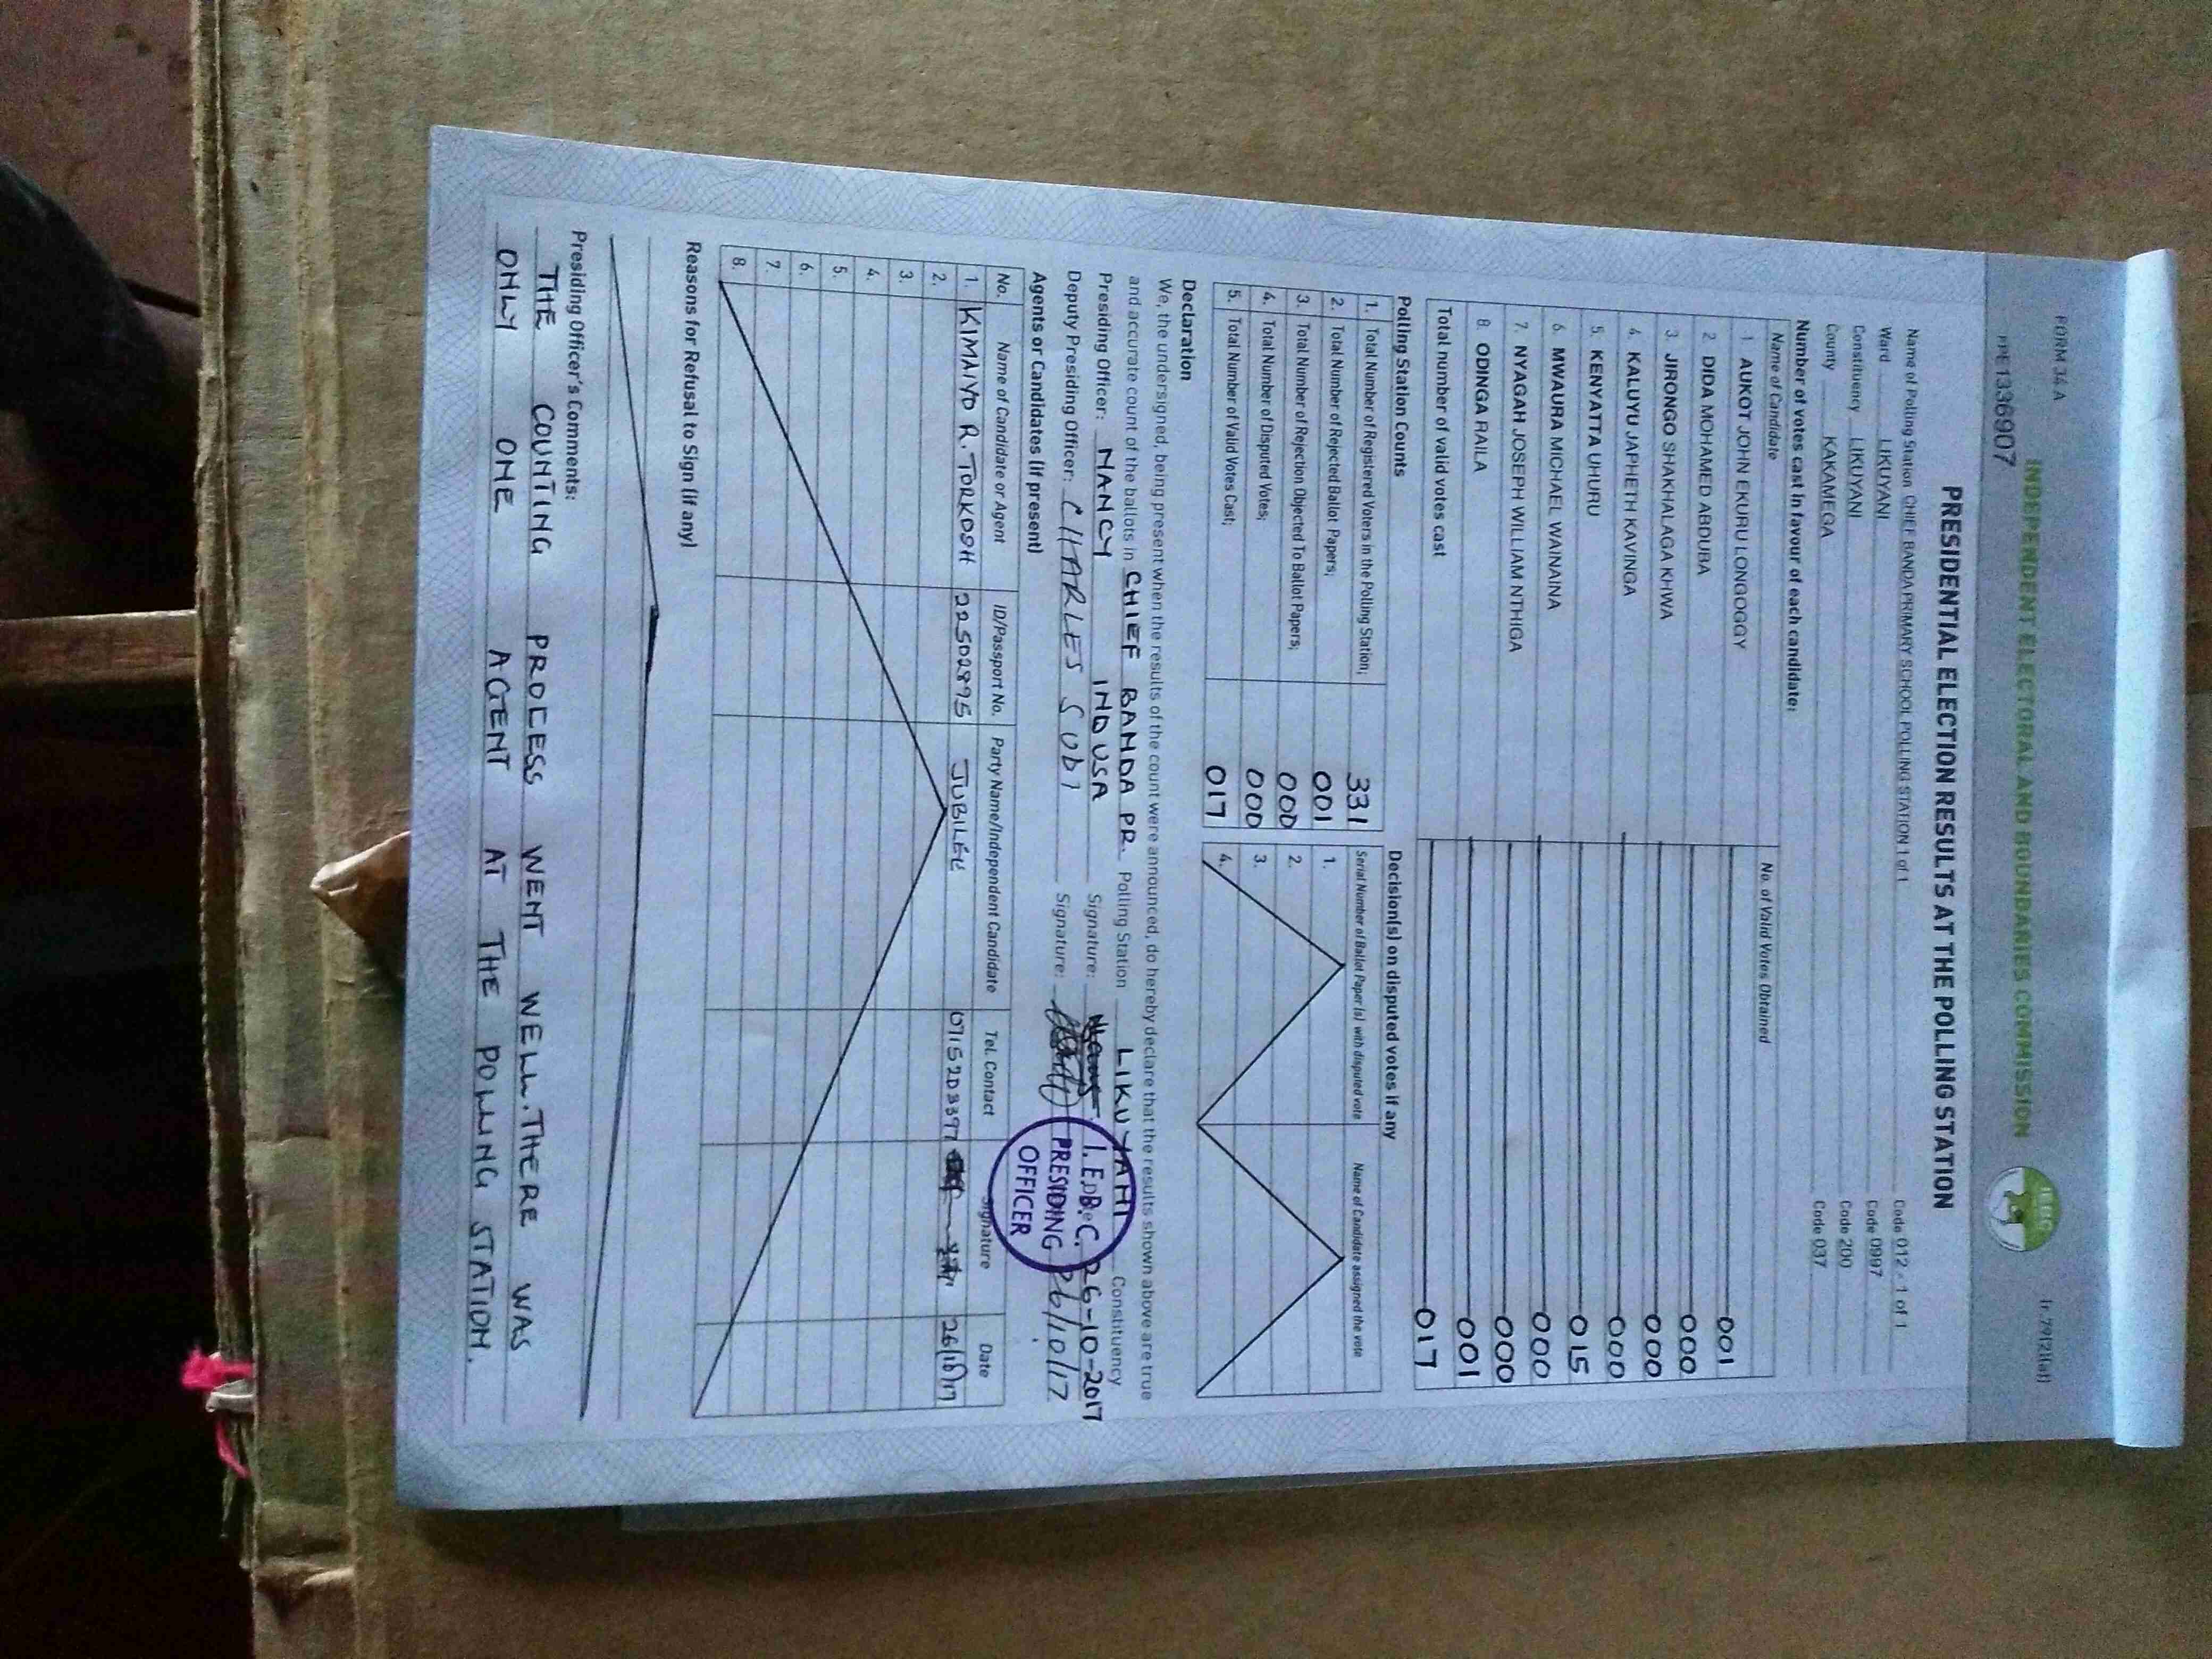 FORM 34 A
1r.79(2)(a)
INDEPENDENT ELECTORAL AND BOUNDARIES COMMISSION
IEBC
PRE1336907
PRESIDENTIAL ELECTION RESULTS AT THE POLLING STATION
Name of Polling Station CHIEF BANDA PRIMARY SCHOOL POLLING STATION 1 of 1 Code 012 - 1 of 1
Ward LIKUYANI Code 0997
Constituency LIKUYANI Code 200
County KAKAMEGA Code 037
Number of votes cast in favour of each candidate:
Name of Candidate No. of Valid Votes Obtained
1 AUKOT JOHN EKURU LONGOGGY 001
2 DIDA MOHAMED ABDUBA 000
3. JIRONGO SHAKHALAGA KHWA 000
4. KALUYU JAPHETH KAVINGA 000
5. KENYATTA UHURU 015
6. MWAURA MICHAEL WAINAINA 000
7. NYAGAH JOSEPH WILLIAM NTHIGA 000
8. ODINGA RAILA 001
Total number of valid votes cast 017
Polling Station Counts
1. Total Number of Registered Voters in the Polling Station; 331
2. Total Number of Rejected Ballot Papers; 001
3. Total Number of Rejection Objected To Ballot Papers; 000
4. Total Number of Disputed Votes; 000
5. Total Number of Valid Votes Cast; 017
Decision(s) on disputed votes if any
Serial Number of Ballot Paper (s) with disputed vote Name of Candidate assigned the vote
1.
2.
3.
4.
Declaration
We, the undersigned, being present when the results of the count were announced, do hereby declare that the results shown above are true
and accurate count of the ballots in CHIEF BANDA PR. Polling Station LIKUYANI Constituency
Presiding Officer: NANCY INDUSA Signature: 26-10-2017
Deputy Presiding Officer: CHARLES SUBI Signature: 26/10/17
I.E.B.C.
PRESIDING
OFFICER
Agents or Candidates (if present)
No. Name of Candidate or Agent ID/Passport No. Party Name/Independent Candidate Tel. Contact Signature Date
1. KIMAIYO R. TOROKOSH 22502895 JUBILEE 0715203397 26/10/17
2.
3.
4.
5.
6.
7.
8.
Reasons for Refusal to Sign (if any)
Presiding Officer's Comments:
THE COUNTING PROCESS WENT WELL. THERE WAS
ONLY ONE AGENT AT THE POLLING STATION.